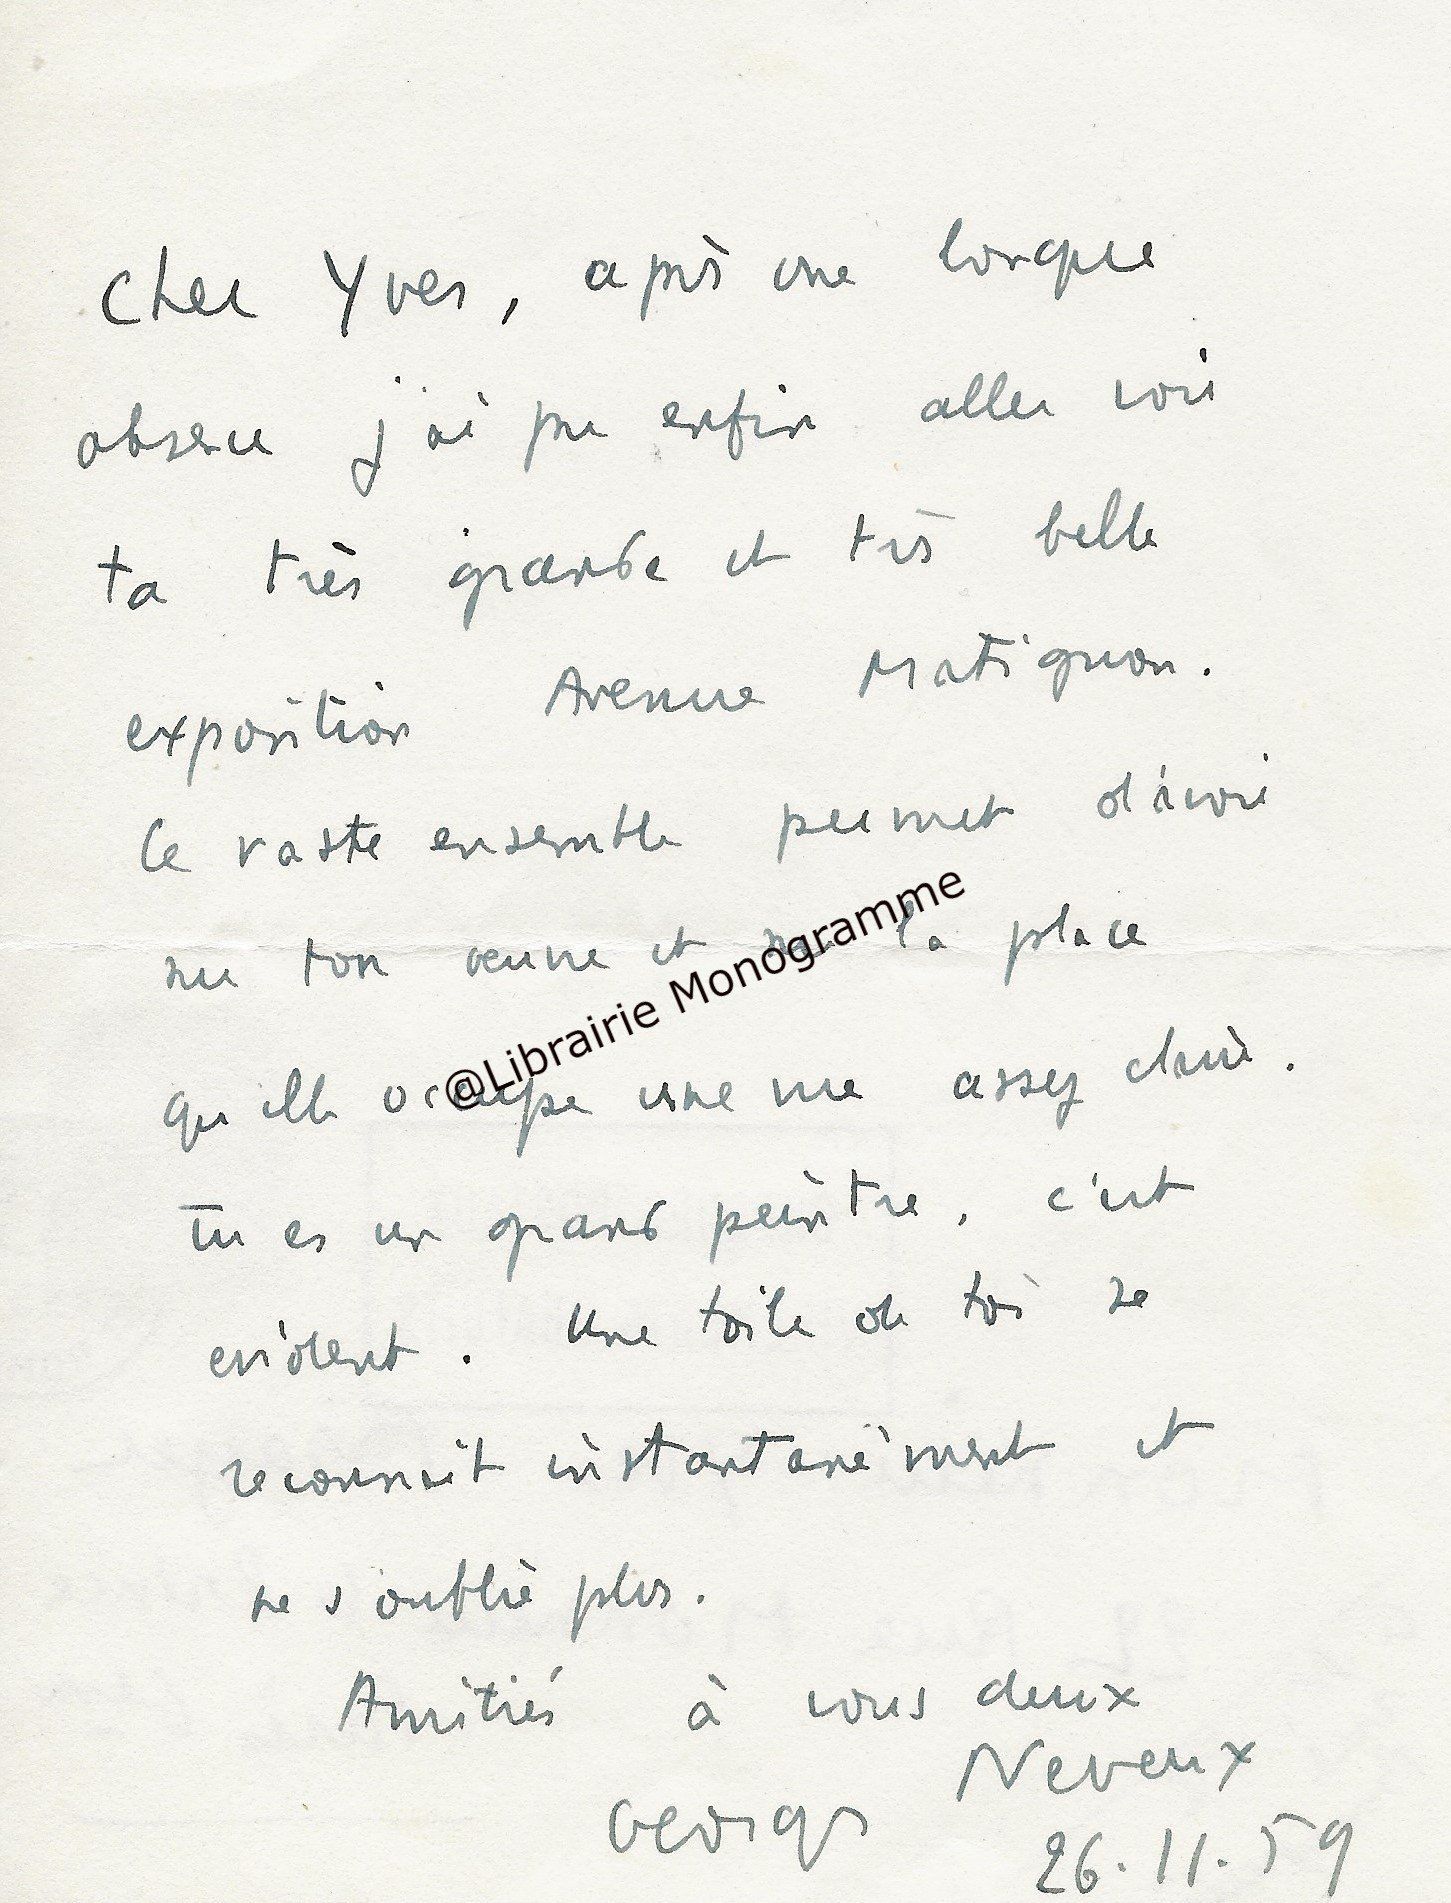 Cher Yves, après une longue
absence j'ai pu enfin aller voir
ta très grande et très belle
exposition Avenue Matignon.
Ce vaste ensemble permet d'avoir
sur ton œuvre et sur la place
@Librairie Monogramme
qu'elle occupe une vue assez claire.
Tu es un grand peintre, c'est
evident. Une toile de toi se
reconnait instantanément et
ne s'oublie plus.
Amitiés à vous deux
Georges Neveux
26.11.59